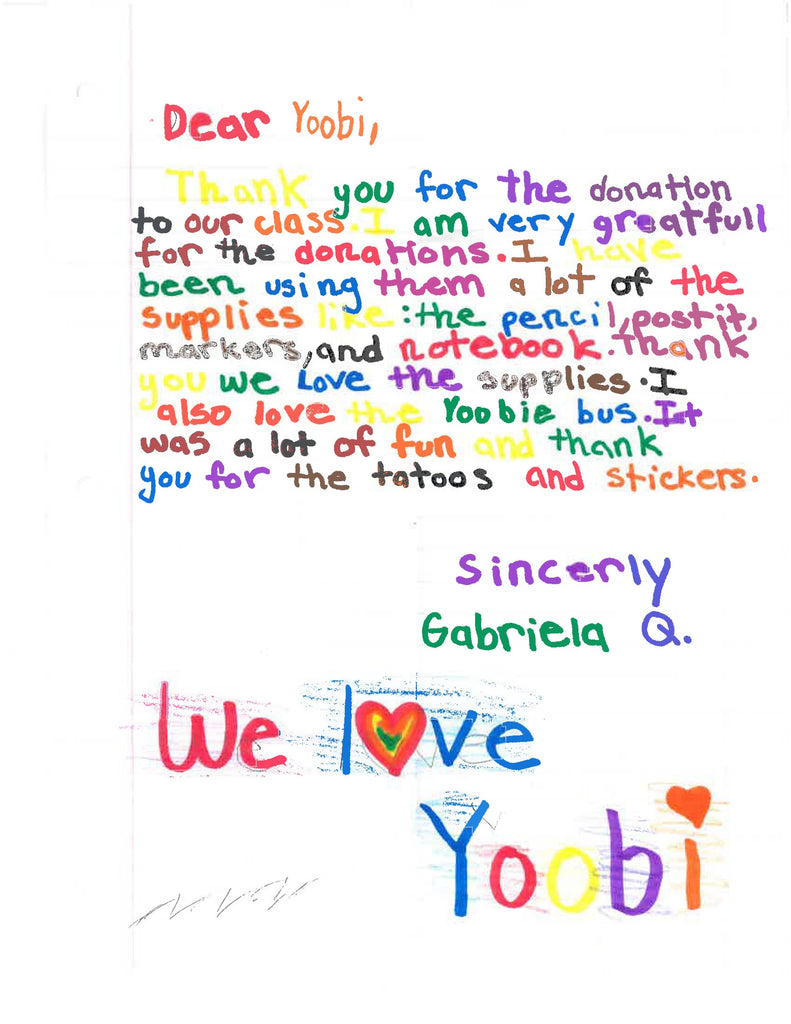 Dear Yoobi,
Thank you for the donation
to our class. I am very greatfull
for the donations. I have
been using them a lot of the
supplies like: the pencil, post it,
markers, and notebook. Thank
you we Love the supplies. I
also love the Yoobie bus. It
was a lot of fun and thank
you for the tatoos and stickers.
Sincerly
Gabriela Q.
We love
Yoobi